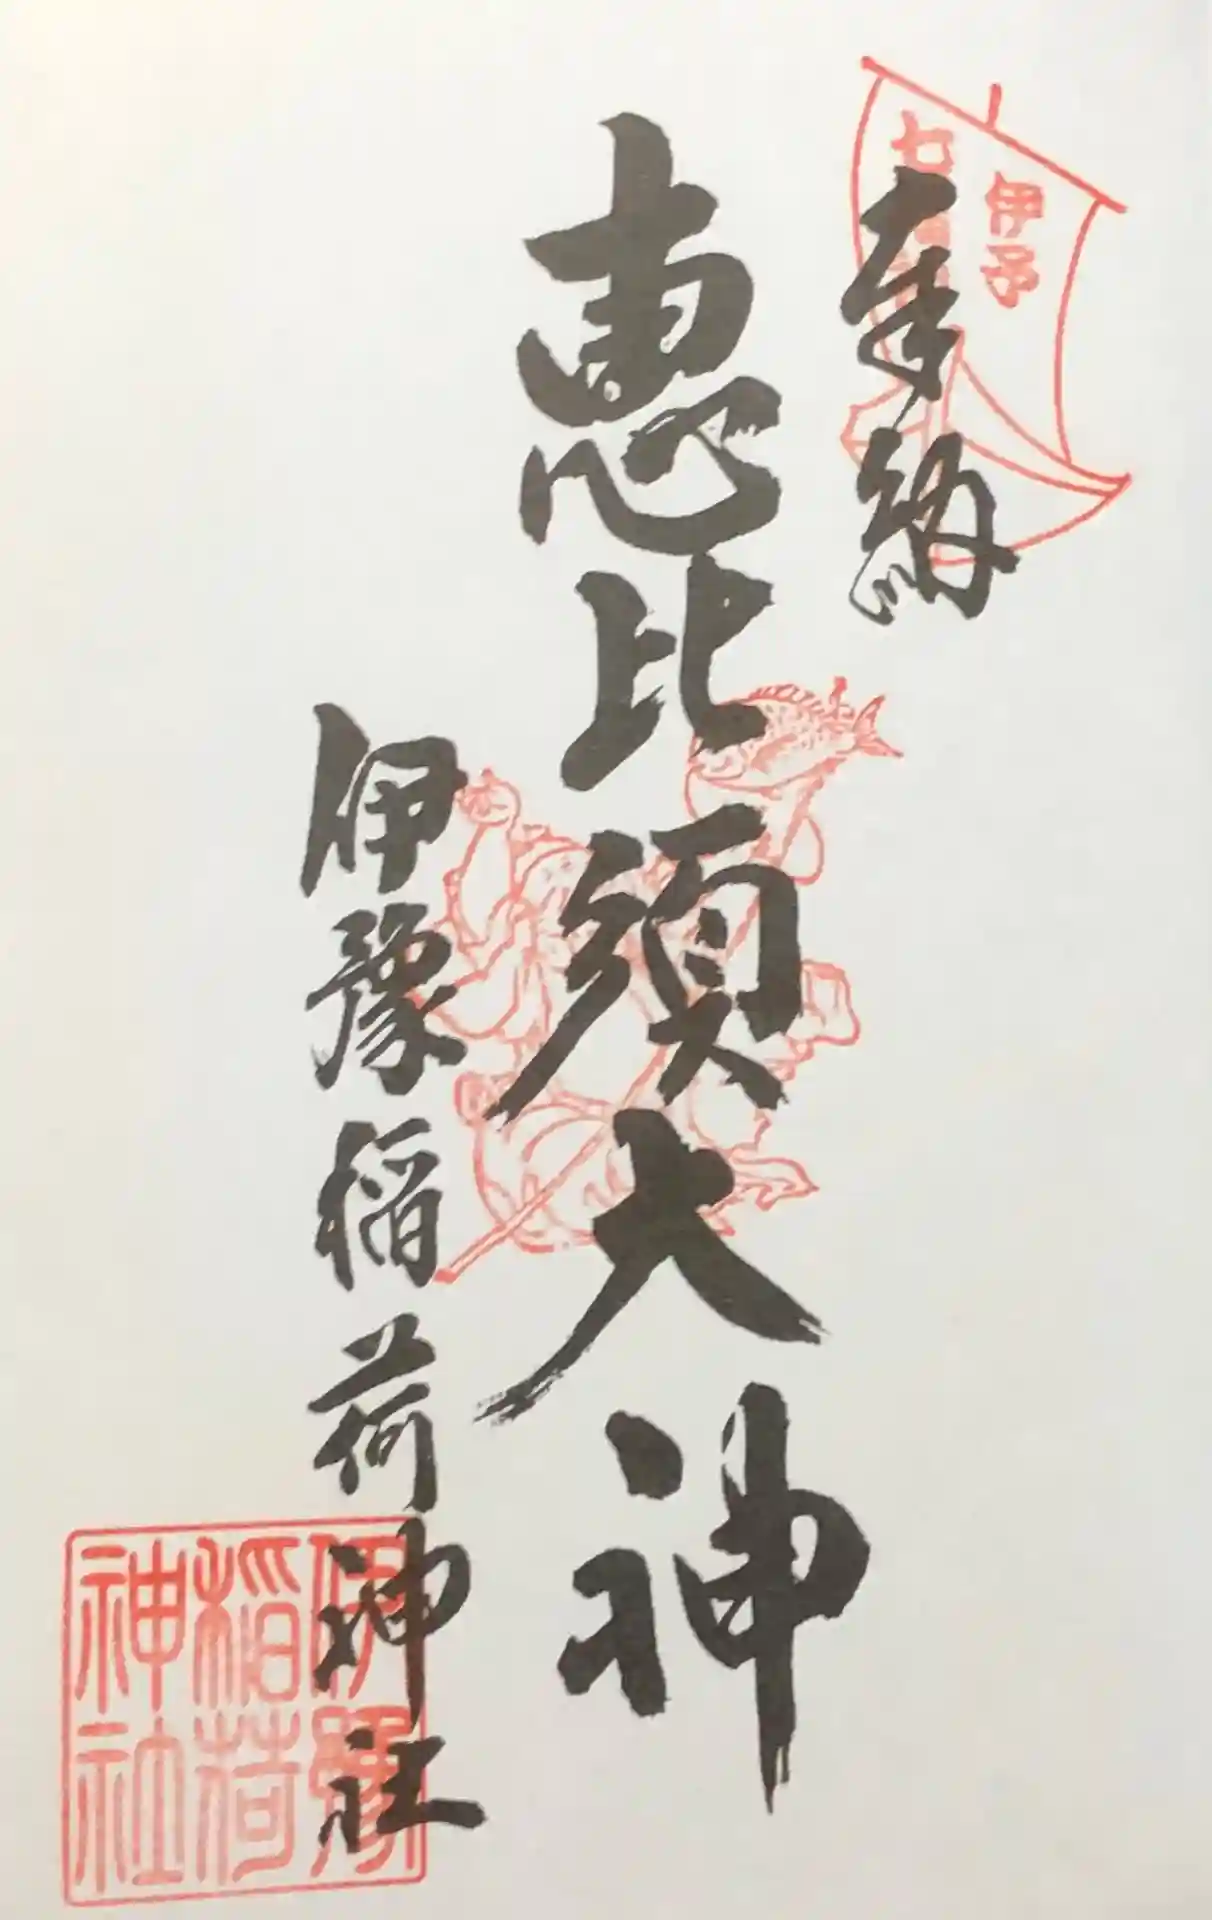 伊予
七福神
奉納
恵比須大神
伊豫稲荷神社
伊豫
稲荷
神社